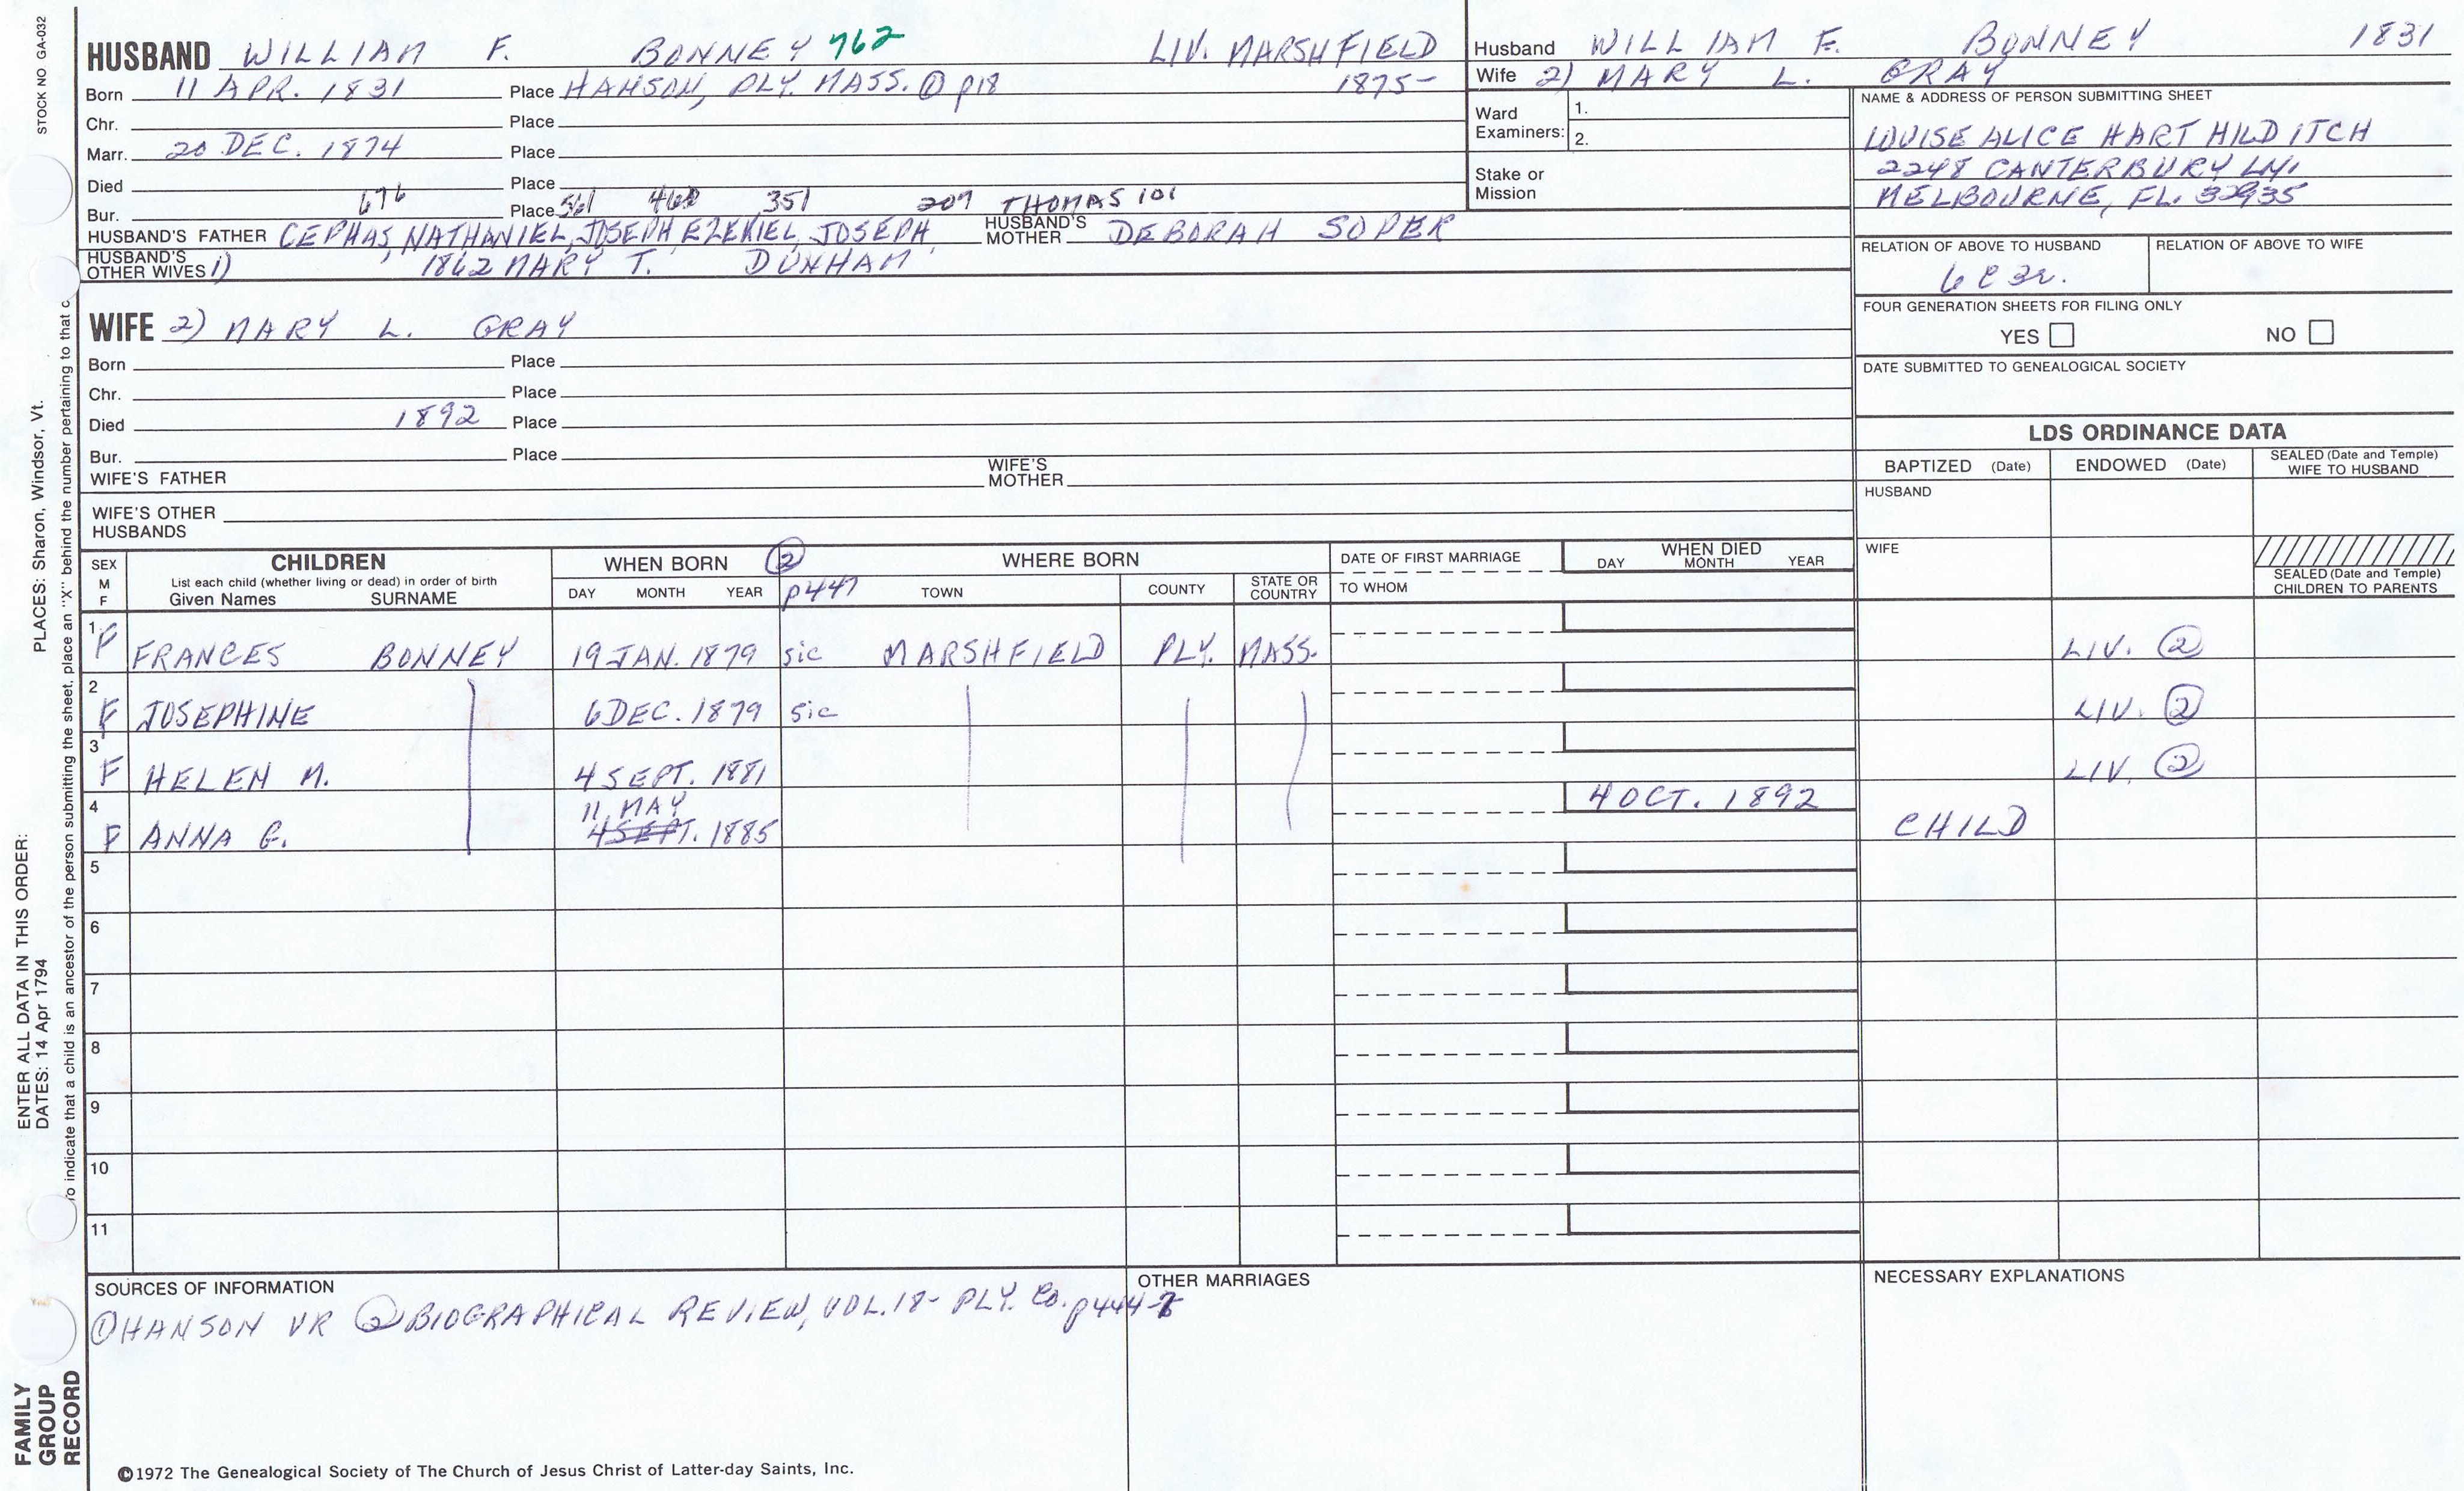 STOCK NO GA-032
PLACES: Sharon, Windsor, Vt.
ENTER ALL DATA IN THIS ORDER:
DATES: 14 Apr 1794
To indicate that a child is an ancestor of the person submitting the sheet, place an "X" behind the number pertaining to that c
FAMILY GROUP RECORD
HUSBAND WILLIAM F. BONNEY 762 LIV. MARSHFIELD
Born 11 APR. 1831 Place HANSON, PLY. MASS. ① p18 1875-
Chr. Place
Marr. 20 DEC. 1874 Place
Died Place
Bur. 676 Place 561 460 351 207 THOMAS 101
HUSBAND'S FATHER CEPHAS, NATHANIEL, JOSEPH EZEKIEL, JOSEPH HUSBAND'S MOTHER DEBORAH SOPER
HUSBAND'S OTHER WIVES 1) 1862 MARY T. DUNHAM
WIFE 2) MARY L. GRAY
Born Place
Chr. Place
Died 1892 Place
Bur. Place
WIFE'S FATHER WIFE'S MOTHER
WIFE'S OTHER HUSBANDS
Husband WILLIAM F. BONNEY 1831
Wife 2) MARY L. GRAY
Ward Examiners: 1.
2.
Stake or Mission
NAME & ADDRESS OF PERSON SUBMITTING SHEET
LOUISE ALICE HART HILDITCH
2248 CANTERBURY LN.
MELBOURNE, FL. 32935
RELATION OF ABOVE TO HUSBAND RELATION OF ABOVE TO WIFE
6C3r.
FOUR GENERATION SHEETS FOR FILING ONLY
YES NO
DATE SUBMITTED TO GENEALOGICAL SOCIETY
LDS ORDINANCE DATA
BAPTIZED (Date) ENDOWED (Date) SEALED (Date and Temple) WIFE TO HUSBAND
HUSBAND
WIFE
SEALED (Date and Temple) CHILDREN TO PARENTS
SEX M F CHILDREN WHEN BORN ② WHERE BORN DATE OF FIRST MARRIAGE WHEN DIED
List each child (whether living or dead) in order of birth
Given Names SURNAME DAY MONTH YEAR p447 TOWN COUNTY STATE OR COUNTRY TO WHOM DAY MONTH YEAR
1 F FRANCES BONNEY 19 JAN. 1879 sic MARSHFIELD PLY. MASS. LIV. ②
2 F JOSEPHINE 6 DEC. 1879 sic LIV. ②
3 F HELEN M. 4 SEPT. 1881 LIV. ②
4 F ANNA G. 11 MAY 4 SEPT. 1885 4 OCT. 1892 CHILD
5
6
7
8
9
10
11
SOURCES OF INFORMATION OTHER MARRIAGES NECESSARY EXPLANATIONS
① HANSON VR ② BIOGRAPHICAL REVIEW, VOL. 18- PLY. Co.
©1972 The Genealogical Society of The Church of Jesus Christ of Latter-day Saints, Inc.